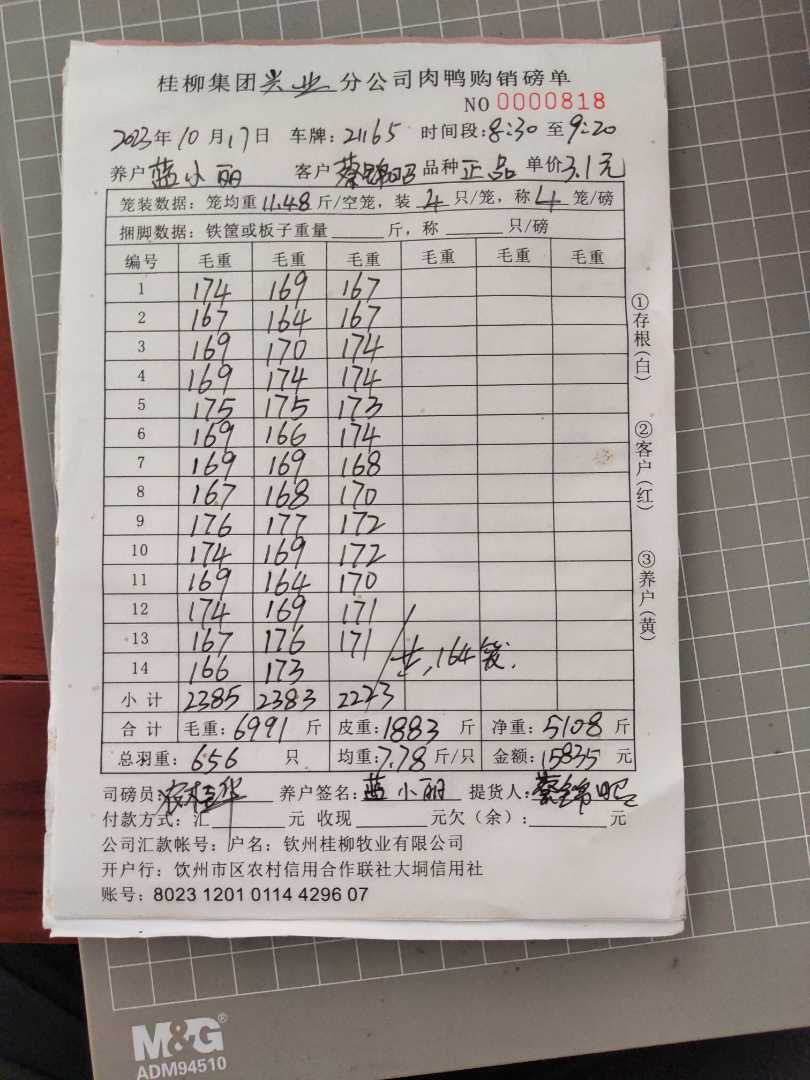 桂柳集团兴业分公司肉鸭购销磅单
NO 0000818
2023年10月17日 车牌:21165 时间段:8:30至9:20
养户 蓝小丽 客户 蔡锦昭 品种 正品 单价3.1元
笼装数据: 笼均重11.48斤/空笼, 装4只/笼, 称4笼/磅
捆脚数据: 铁筐或板子重量____斤, 称____只/磅
编号 毛重 毛重 毛重 毛重 毛重 毛重
1 174 169 167
2 167 164 167
3 169 170 174
4 169 174 174
5 175 175 173
6 169 166 174
7 169 169 168
8 167 168 170
9 176 177 172
10 174 169 172
11 169 164 170
12 174 169 171
13 167 176 171
14 166 173
共,164笼.
小计 2385 2383 2223
合计 毛重:6991斤 皮重:1883斤 净重:5108斤
总羽重:656只 均重:7.78斤/只 金额:15835元
司磅员: 养户签名:蓝小丽 提货人:蔡锦昭
付款方式:汇____元 收现____元欠(余):____元
公司汇款帐号: 户名: 钦州桂柳牧业有限公司
开户行: 钦州市区农村信用合作联社大垌信用社
账号: 8023 1201 0114 4296 07
①存根(白)
②客户(红)
③养户(黄)
M&G®
ADM94510